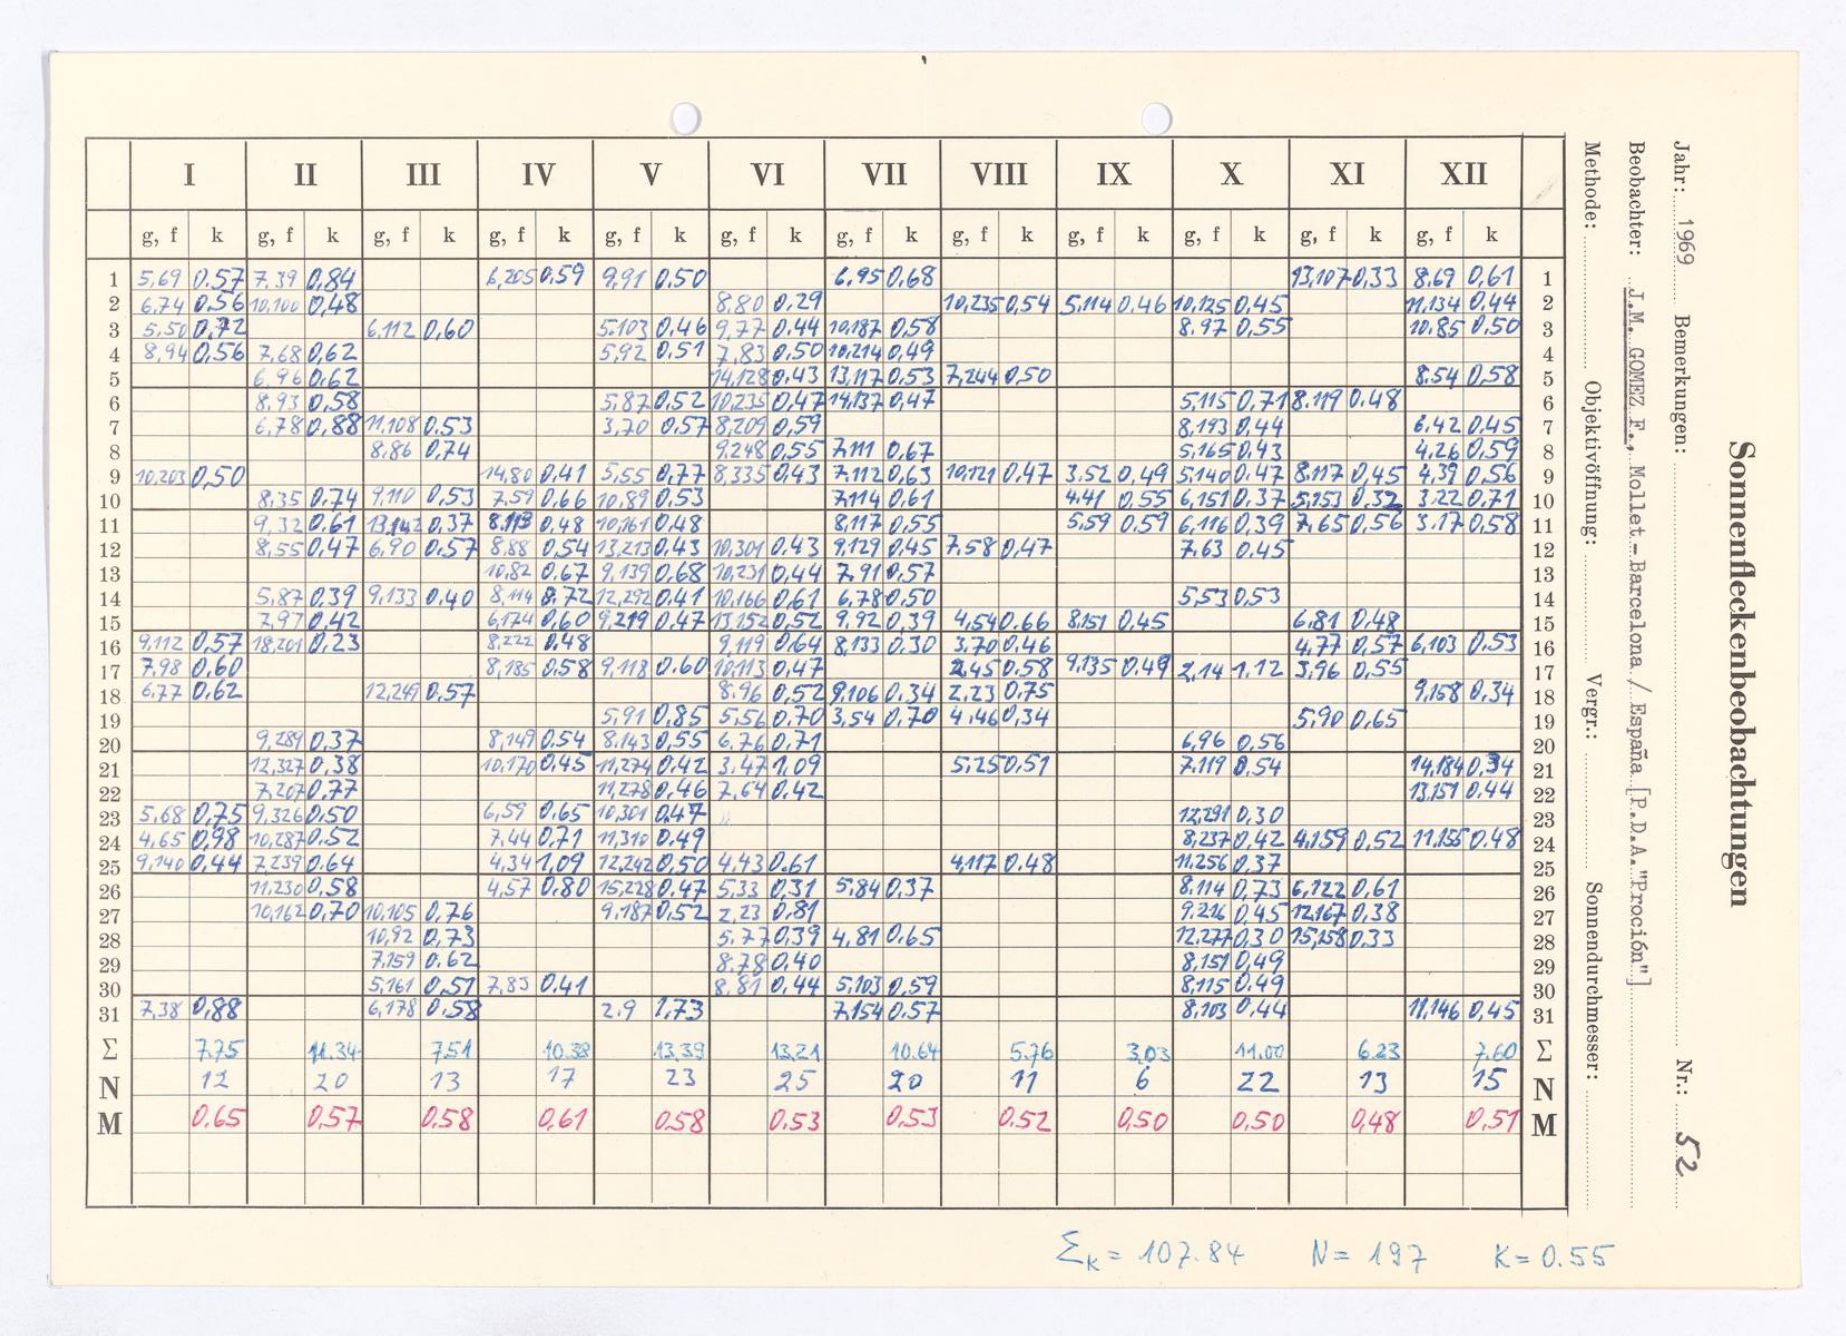 I II III IV V VI VII VIII IX X XI XII
g, f k g, f k g, f k g, f k g, f k g, f k g, f k g, f k g, f k g, f k g, f k g, f k
1 5,69 0.57 7.39 0,84 6,205 0,59 9,91 0.50 6,95 0,68 13,107 0,33 8.69 0,61 1
2 6,74 0,56 10,100 0,48 8.80 0,29 10,235 0,54 5,114 0,46 10,125 0,45 11,134 0,44 2
3 5,50 0,72 6.112 0,60 5.103 0,46 9,77 0.44 10,187 0,58 8.97 0,55 10.85 0,50 3
4 8,94 0,56 7.68 0,62 5,92 0.51 7,83 0,50 10,214 0,49 4
5 6,96 0.62 14,128 0,43 13,117 0,53 7,244 0,50 8.54 0,58 5
6 8.93 0,58 5,87 0,52 10,235 0,47 14,137 0,47 5,115 0,71 8.119 0.48 6
7 6,78 0,88 11,108 0.53 3,70 0,57 8,209 0,59 8,193 0,44 6,42 0,45 7
8 8.86 0,74 9.248 0,55 7.111 0,67 5,165 0,43 4.26 0,59 8
9 10,203 0,50 14,80 0,41 5,55 0,77 8,335 0,43 7.112 0,63 10,121 0,47 3,52 0,49 5,140 0.47 8.117 0,45 4,39 0,56 9
10 8,35 0,74 9,110 0,53 7,59 0,66 10,89 0,53 7,114 0,61 4,41 0,55 6,151 0,37 5,153 0,32 3.22 0,71 10
11 9,32 0.61 13,142 0,37 8.113 0,48 10,161 0,48 8.117 0,55 5,59 0,59 6,116 0,39 7,65 0,56 3.17 0,58 11
12 8,55 0,47 6,90 0,57 8,88 0,54 13,213 0,43 10,301 0,43 9,129 0,45 7,58 0,47 7.63 0,45 12
13 10,82 0.67 9,139 0,68 10,231 0,44 7,91 0,57 13
14 5,87 0,39 9,133 0,40 8,114 0.72 12,292 0,41 10,166 0,61 6,78 0,50 5,53 0,53 14
15 7,97 0,42 6,174 0,60 9,219 0,47 13,152 0,52 9,92 0,39 4,54 0.66 8,151 0,45 6,81 0,48 15
16 9,112 0,57 18,201 0,23 8,222 0,48 9,119 0,64 8,133 0,30 3,70 0,46 4.77 0,57 6,103 0,53 16
17 7,98 0,60 8,185 0.58 9,118 0.60 10,113 0,47 2,45 0.58 9,135 0,49 2,14 1,12 3,96 0,55 17
18 6,77 0,62 12,249 0,57 8,96 0,52 9,106 0,34 2,23 0,75 9,158 0,34 18
19 5,91 0,85 5,56 0,70 3,54 0,70 4,46 0,34 5,90 0,65 19
20 9,289 0,37 8,149 0,54 8.143 0,55 6,76 0,71 6,96 0,56 20
21 12,327 0,38 10,170 0,45 11,274 0,42 3,47 1,09 5,25 0,51 7.119 0,54 14,184 0,34 21
22 7,207 0,77 11,278 0,46 7,64 0,42 13,151 0,44 22
23 5,68 0,75 9,326 0,50 6,59 0.65 10,301 0,47 12,291 0,30 23
24 4,65 0,98 10,287 0,52 7,44 0,71 11,310 0,49 8,237 0,42 4,159 0,52 11,155 0,48 24
25 9,140 0,44 7,239 0.64 4,34 1,09 12,242 0,50 4,43 0.61 4,117 0.48 11.256 0,37 25
26 11,230 0,58 4,57 0,80 15,228 0.47 5,33 0,31 5,84 0,37 8,114 0,73 6,122 0,61 26
27 10,162 0,70 10,105 0,76 9,187 0,52 2,23 0,81 9.216 0,45 12,167 0,38 27
28 10,92 0,73 5,77 0,39 4,81 0.65 12,277 0,30 15,158 0,33 28
29 7,159 0.62 8,78 0,40 8,151 0,49 29
30 5,161 0,51 7,83 0,41 8,81 0,44 5,103 0,59 8,115 0,49 30
31 7,38 0,88 6,178 0,58 2,9 1,73 7,154 0.57 8,103 0,44 11,146 0,45 31
Σ 7.75 11.34 7.51 10.38 13,39 13,21 10.64 5.76 3,03 11.00 6.23 7.60 Σ
N 12 20 13 17 23 25 20 11 6 22 13 15 N
M 0.65 0,57 0,58 0,61 0.58 0.53 0,53 0.52 0,50 0,50 0,48 0,51 M
Σk = 107.84 N = 197 K = 0.55
Sonnenfleckenbeobachtungen
Jahr: 1969 Bemerkungen: Nr.: 52
Beobachter: J.M. GOMEZ F., Mollet - Barcelona / España [P.D.A. "Proción"]
Methode: Objektivöffnung: Vergr.: Sonnendurchmesser: